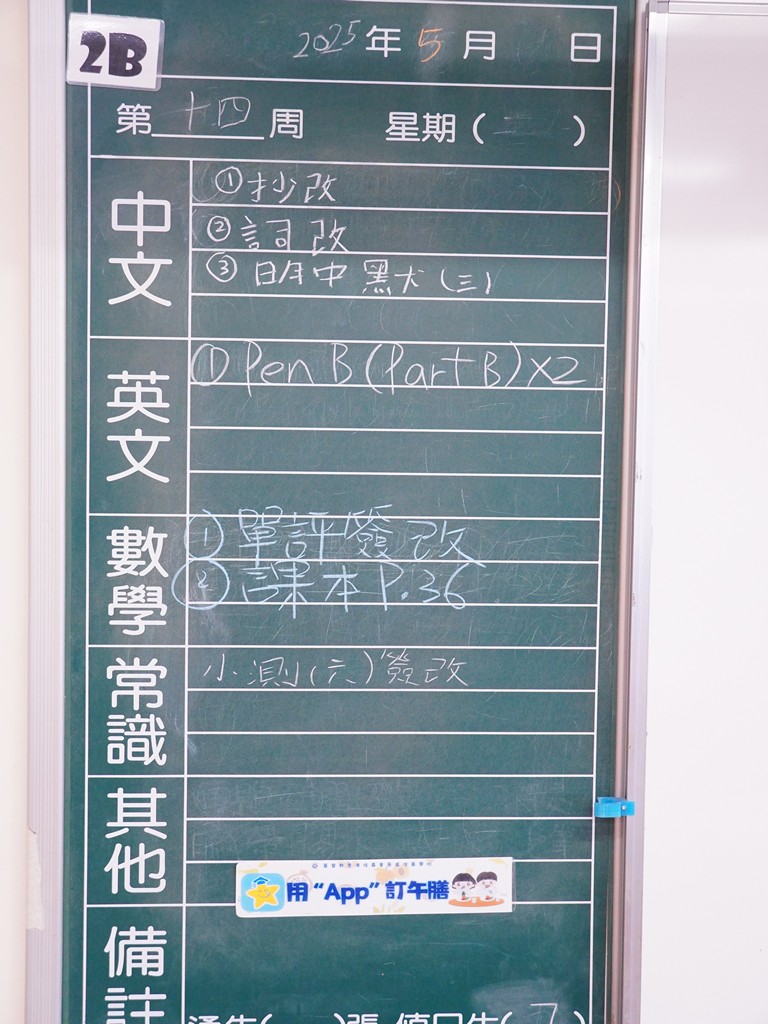 2B
2025年5月 日
第十四周 星期( )
中文
①抄改
②詞改
③日年中黑犬(三)
英文
① Pen B (Part B) X2
數學
①單評簽改
②課本P.36
常識
小測(六)簽改
其他
用“App”訂午膳
備註
通告( )張 值日生(7)